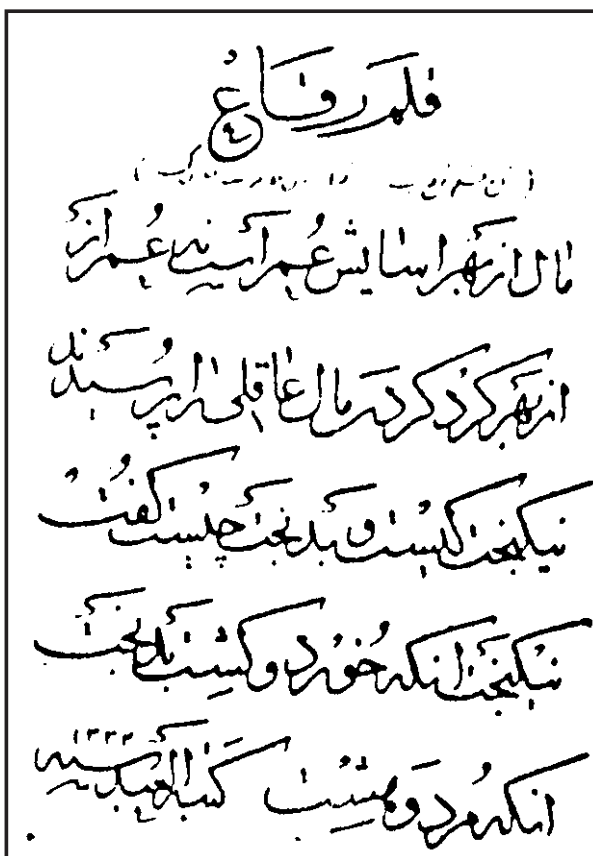 قلم رقاع
مال از بهر آسایش عمر است نه عمر از
از بهر گرد کردن مال عاقلی را پرسیدند
نیکبخت کیست و بدبخت چیست گفت
نیکبخت آنکه خورد و کشت بدبخت
آنکه مرد و هشت کتبه العبد ۱۳۳۲